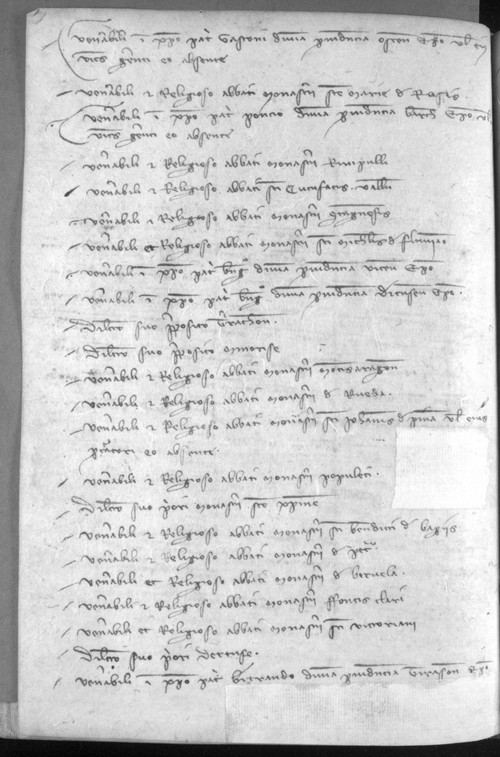 venerabili i xpo pat Gastoni divina providencia oscen Epo vl ei
vices gerenti eo absente
venerabili et Religioso abbati monasterii ste marie d Rosis
venerabili i xpo pat poncio divina providencia barch Epo vl
vices gerenti eo absente
venerabili et Religioso abbati monasterii Rivipulli
venerabili et Religioso abbati sti Cucufatis vallen
venerabili et Religioso abbati monasterii
venerabili et Religioso abbati monasterii sti michlis d fluviano
venerabili i xpo pat bng divina providencia vicen Epo
venerabili i xpo pat bng divina providencia dertusen Epo
dilecto suo preposito
dilecto suo preposito minorise
venerabili et Religioso abbati monasterii montisaragon
venerabili et Religioso abbati monasterii d Rueda
venerabili et Religioso abbati monasterii sti johannis d pinna vl eius
eo absente
venerabili et Religioso abbati monasterii populeti
dilecto suo priori monasterii ste xpine
venerabili et Religioso abbati monasterii sti benedicti d bagiis
venerabili et Religioso abbati monasterii d
venerabili et Religioso abbati monasterii d beruela
venerabili et Religioso abbati monasterii ffontis clari
venerabili et Religioso abbati monasterii sti victoriani
dilecto suo priori dertuse
venerabili i xpo pat beltrando divina providencia tirason Epo